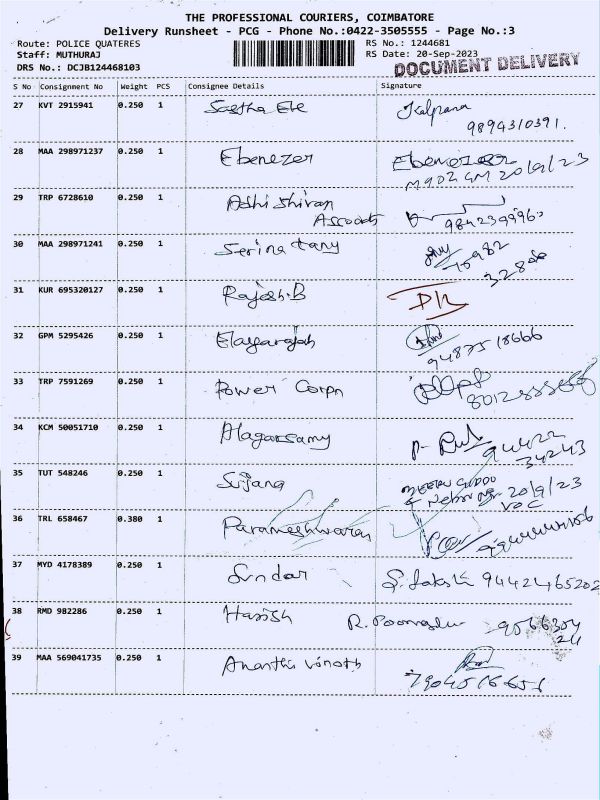 THE PROFESSIONAL COURIERS, COIMBATORE
Delivery Runsheet - PCG - Phone No.:0422-3505555 - Page No.:3
Route: POLICE QUATERES RS No.: 1244681
Staff: MUTHURAJ RS Date: 20-Sep-2023
DRS No.: DCJB124468103 DOCUMENT DELIVERY
S No Consignment No Weight PCS Consignee Details Signature
27 KVT 2915941 0.250 1 Kalpana
9894310391.
28 MAA 298971237 0.250 1 Ebenezer Ebenezer
20/9/23
29 TRP 6728610 0.250 1
30 MAA 298971241 0.250 1 Serina
31 KUR 695320127 0.250 1 Rajesh.B
32 GPM 5295426 0.250 1 Elayarajah
9487518666
33 TRP 7591269 0.250 1 Power Corpn
34 KCM 50051710 0.250 1 Alagarsamy
94422
34243
35 TUT 548246 0.250 1 Sujang
20/9/23
VOC
36 TRL 658467 0.380 1 Parameshwaran
37 MYD 4178389 0.250 1 Sundar 9442465202
38 RMD 982286 0.250 1 Harish
39 MAA 569041735 0.250 1 Ananthi Vinoth
7904516651